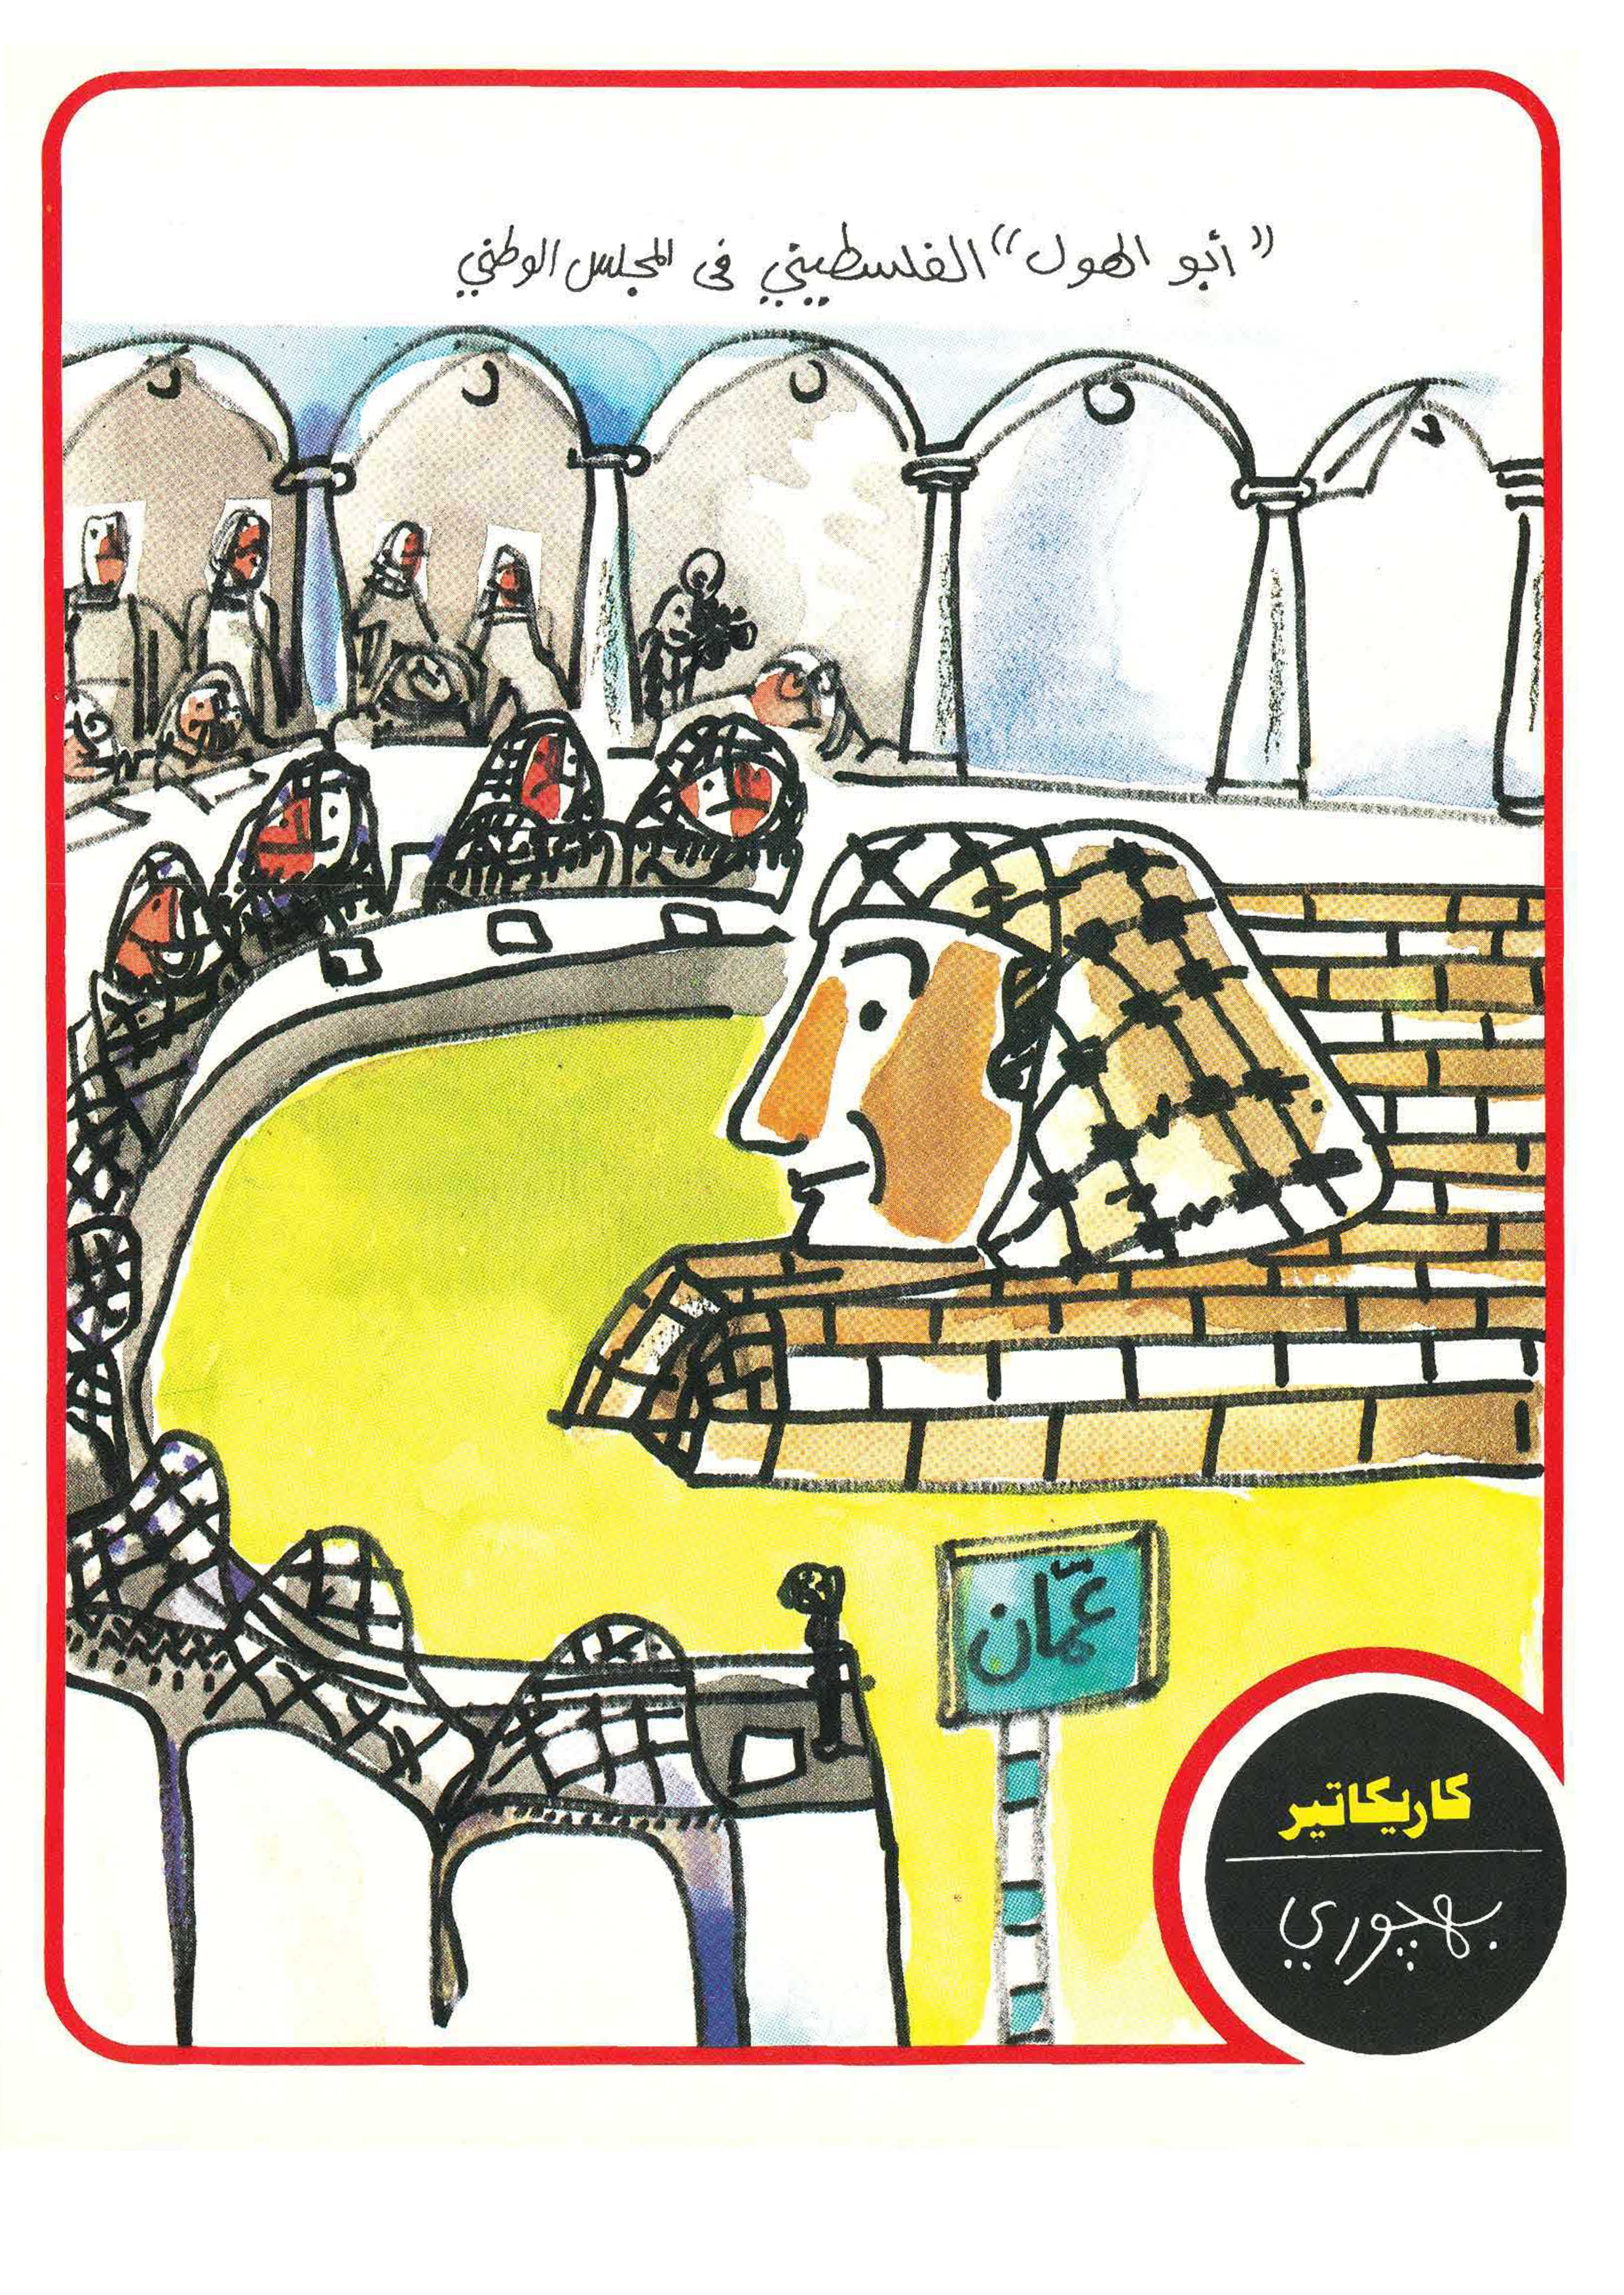 "أبو الهول" الفلسطيني في المجلس الوطني
عمّان
كاريكاتير
بهجوري